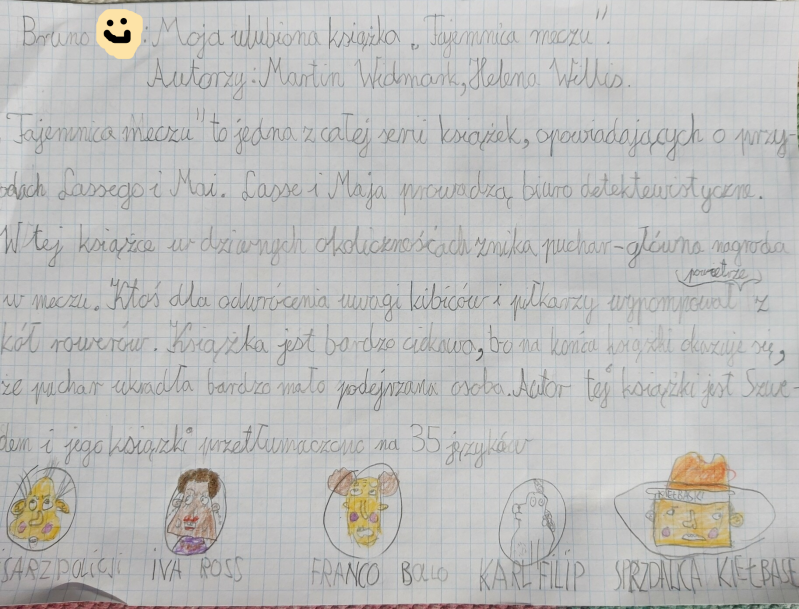 Bruno : Moja ulubiona książka „Tajemnica meczu".
Autorzy: Martin Widmark, Helena Willis.
Tajemnica meczu" to jedna z całej serii książek, opowiadających o przy-
odach Lassego i Mai. Lasse i Maja prowadzą biuro detektewistyczne.
W tej książce w dziwnych okolicznościach znika puchar-główna nagroda
powietrze
w meczu. Ktoś dla odwrócenia uwagi kibiców i piłkarzy wypompował z
kół rowerów. Książka jest bardzo ciekawa, bo na końcu książki okazuje się,
że puchar ukradła bardzo mało podejrzana osoba. Autor tej książki jest Szwe-
dem i jego książki przetłumaczono na 35 języków
ISARZ POLICJI IVA ROSS FRANCO BOLLO KARL FILIP SPRZDAWCA KIEŁBASE